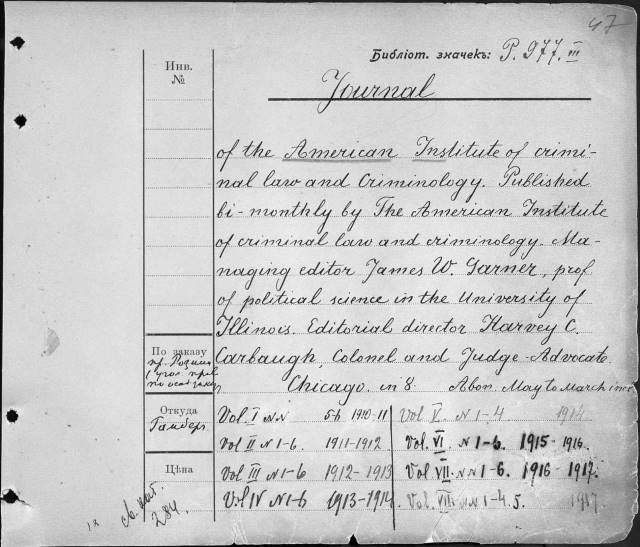 47
Библіот. значекъ: P. 977. III
Инв. №
Journal
of the American Institute of crimi-
nal law and Criminology. Published
bi-monthly by The American Institute
of criminal law and criminology. Ma-
naging editor James W. Garner, prof
of political science in the University of
Illinois. Editorial director Harvey C.
Carbaugh, Colonel and Judge-Advocate
Chicago. in 8. Abon. May to March
По заказу
Откуда
Гамберг.
Цѣна
284.
Vol. I NN 5-6 1910-11
Vol II N 1-6. 1911-1912
Vol III N 1-6 1912-1913
Vol IV N 1-6 1913-1914
Vol V N 1-4 1914
Vol. VI N 1-6. 1915-1916.
Vol. VII. NN 1-6. 1916-1917.
Vol. VIII NN 1-4. 5. 1917